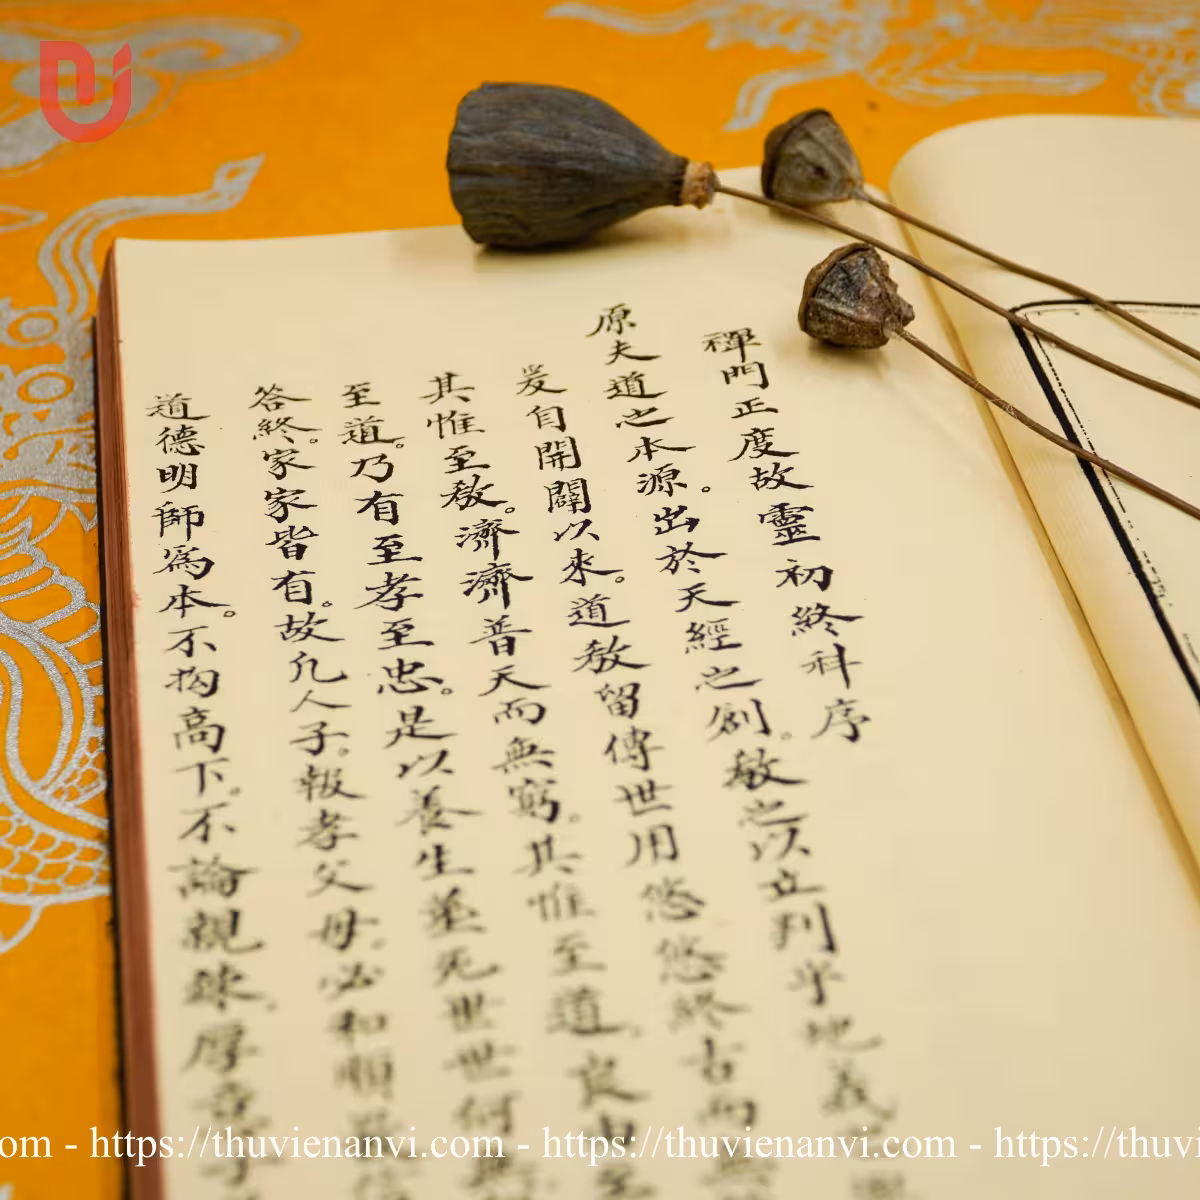 禪門正度故靈初終科序
原夫道之本源。出於天經之創。敬之以立判乎地義
爰自開闢以來。道教留傳世用悠悠終古而無
其惟至教。濟濟普天而無窮。其惟至道。良由至
至道。乃有至孝至忠。是以養生葬死世世何
答終。家家皆有。故凡人子。報孝父母。必和順
道德明師為本。不拘高下。不論親疎。厚
om - https://thuvienanvi.com - https://thuvienanvi.com - https://thuvi